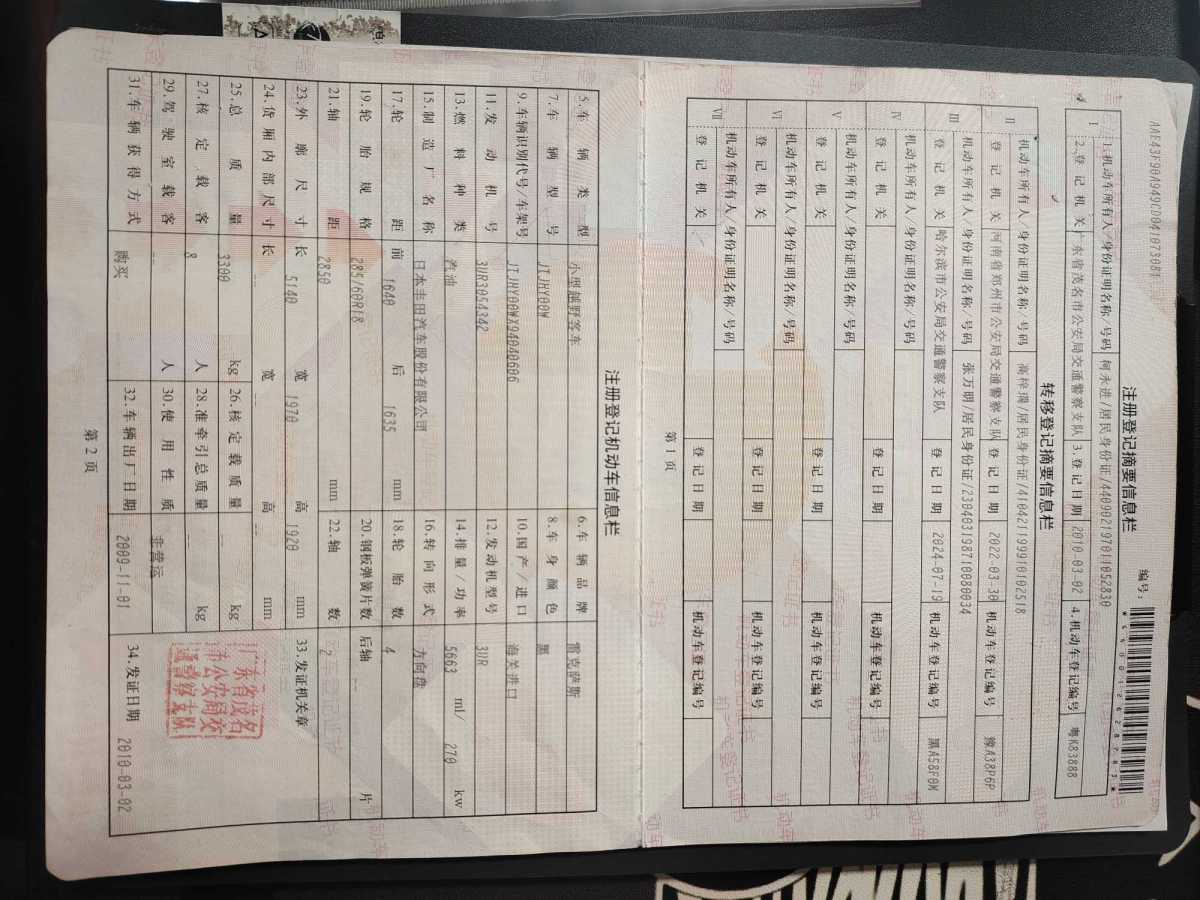 AAE43F90A949CD0041073081
注册登记摘要信息栏
编号:
*440012628785*
I
1.机动车所有人/身份证明名称/号码 柯永进/居民身份证/440902197011052830
2.登记机关 东省茂名市公安局交通警察支队 3.登记日期 2010-03-02 4.机动车登记编号 粤K83888
转移登记摘要信息栏
II
机动车所有人/身份证明名称/号码 高梓瑞/居民身份证/410421199910102518
登记机关 河南省郑州市公安局交通警察支队 登记日期 2022-03-30 机动车登记编号 豫A38P6P
III
机动车所有人/身份证明名称/号码 张万明/居民身份证/230403198710080034
登记机关 哈尔滨市公安局交通警察支队 登记日期 2024-07-19 机动车登记编号 黑A58F0K
IV
机动车所有人/身份证明名称/号码
登记机关 登记日期 机动车登记编号
V
机动车所有人/身份证明名称/号码
登记机关 登记日期 机动车登记编号
VI
机动车所有人/身份证明名称/号码
登记机关 登记日期 机动车登记编号
VII
机动车所有人/身份证明名称/号码
登记机关 登记日期 机动车登记编号
第1页
注册登记机动车信息栏
5.车辆类型 小型越野客车 6.车辆品牌 雷克萨斯
7.车辆型号 JTJHY00W 8.车身颜色 黑
9.车辆识别代号/车架号 JTJHY00WX94040606 10.国产/进口 海关进口
11.发动机号 3UR3054342 12.发动机型号 3UR
13.燃料种类 汽油 14.排量/功率 5663 ml/ 270 kw
15.制造厂名称 日本丰田汽车股份有限公司 16.转向形式 方向盘
17.轮距 前 1640 后 1635 mm 18.轮胎数 4
19.轮胎规格 285/60R18 20.钢板弹簧片数 后轴 -- 片
21.轴距 2850 mm 22.轴数 2
23.外廓尺寸 长 5140 宽 1970 高 1920 mm 33.发证机关章
24.货厢内部尺寸 长 -- 宽 -- 高 -- mm
25.总质量 3300 kg 26.核定载质量 -- kg
27.核定载客 8 人 28.准牵引总质量 -- kg
29.驾驶室载客 -- 人 30.使用性质 非营运
31.车辆获得方式 购买 32.车辆出厂日期 2009-11-01 34.发证日期 2010-03-02
广东省茂名
市公安局交
通警察支队
第2页